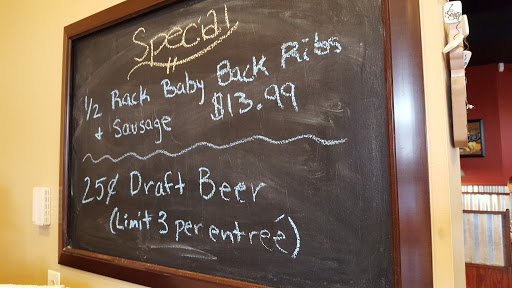 Special
1/2 Rack Baby Back Ribs
+ Sausage $13.99
25¢ Draft Beer
(Limit 3 per entreé)